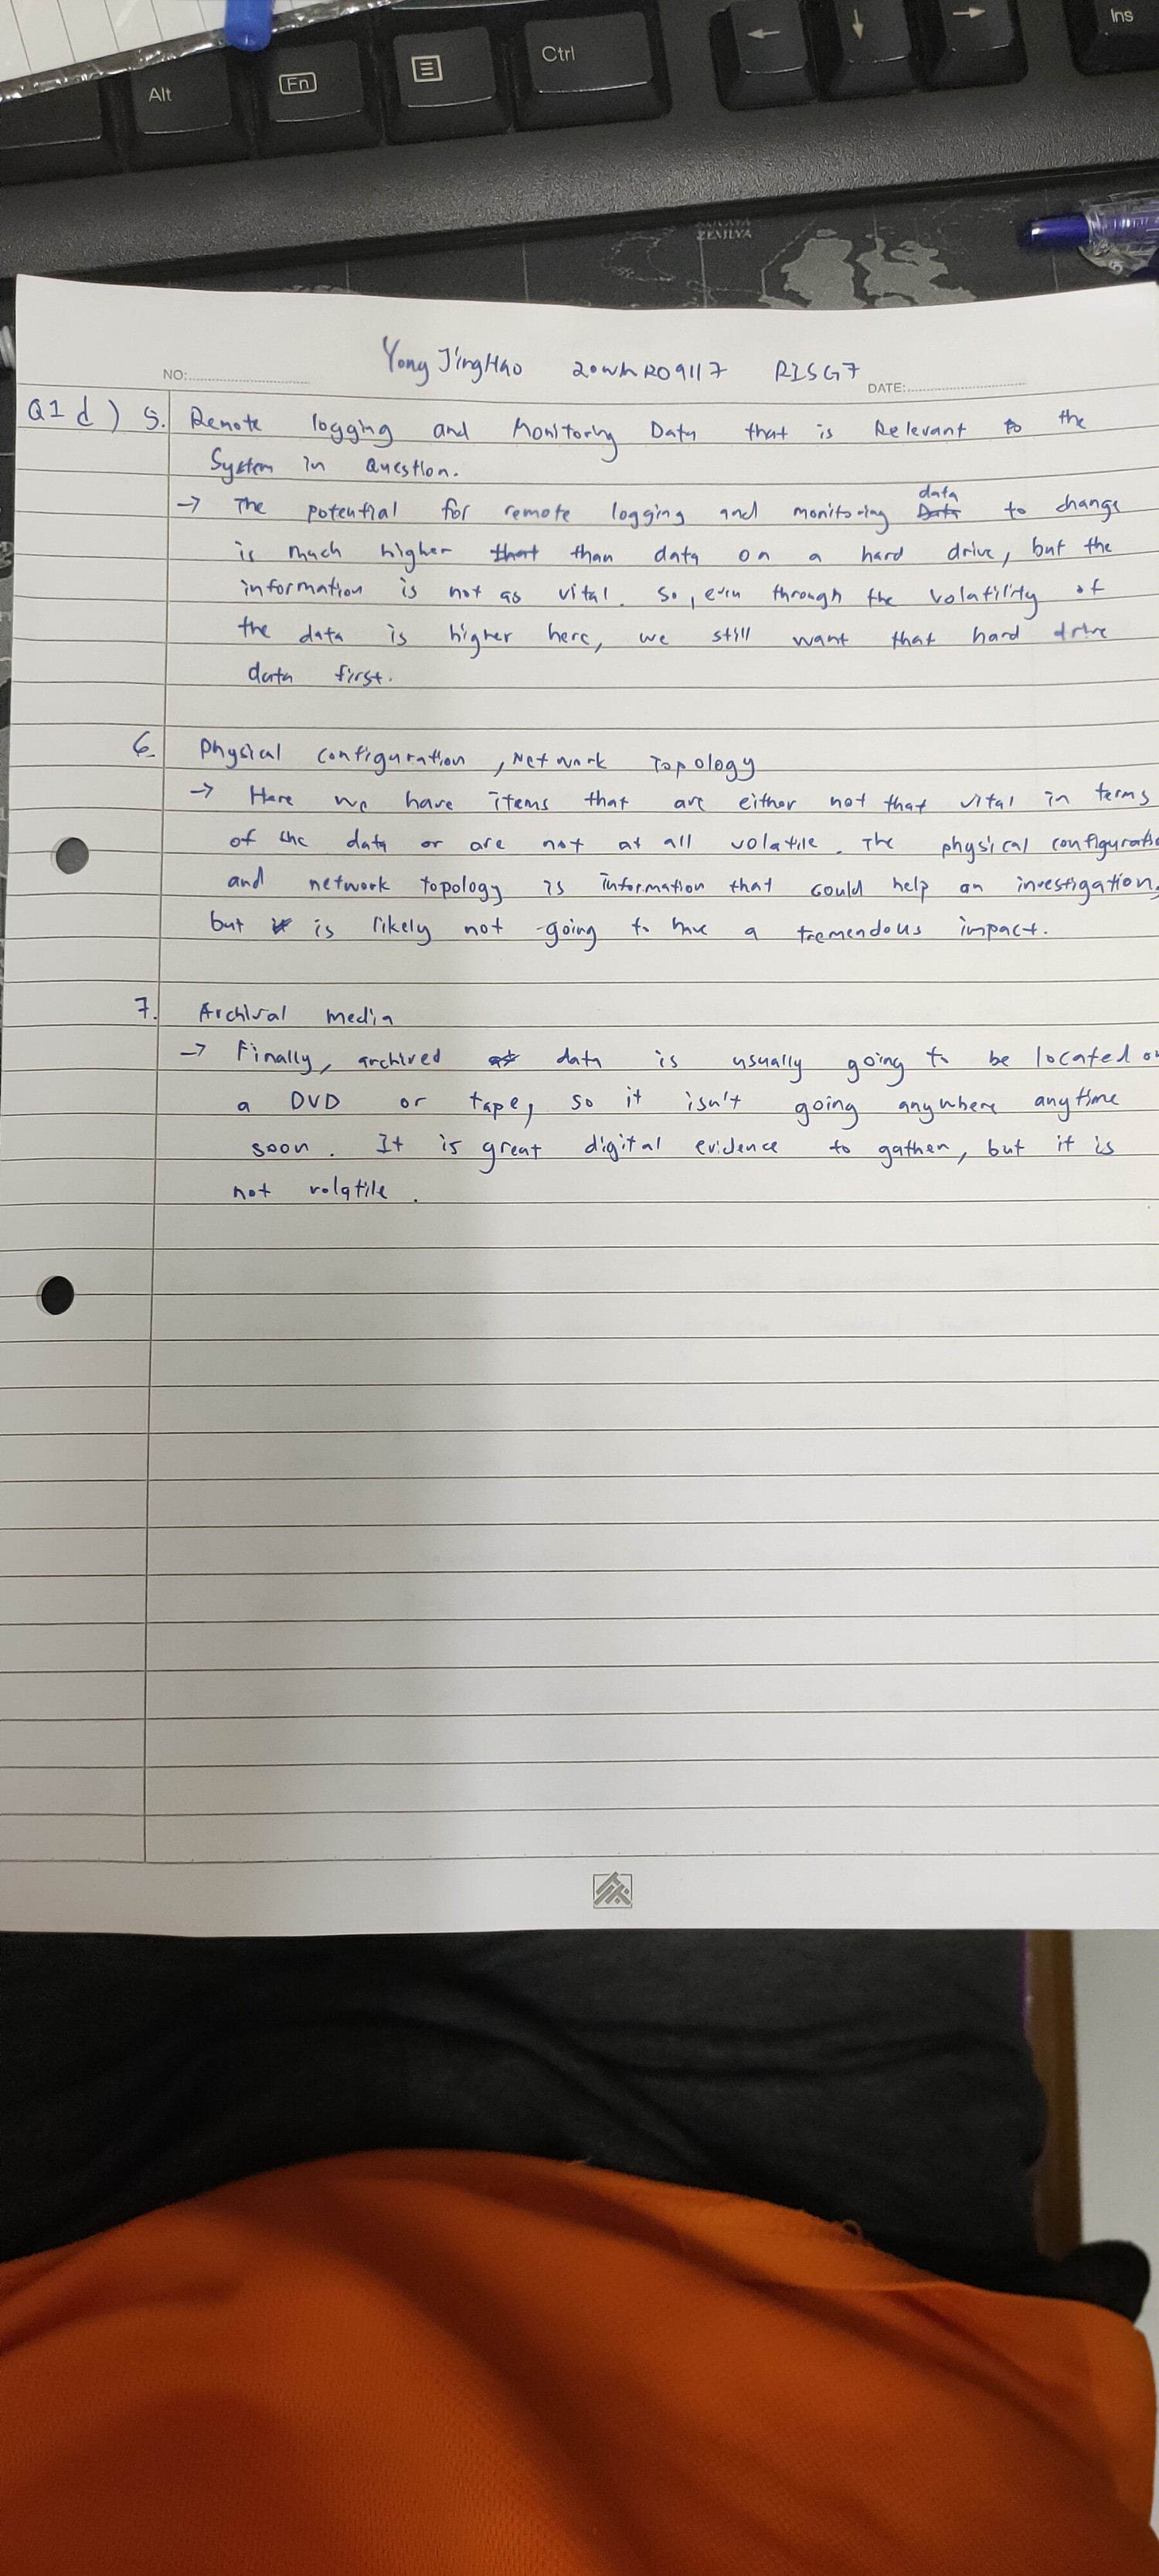 Alt
Fn
Ctrl
Ins
ZEMLYA
Yong JingHao 20WMR09117 RISG7
NO:
DATE:
Q1 d) 5. Remote logging and Monitoring Data that is Relevant to the
System in Question.
→ The potential for remote logging and monitoring data to change
is much higher that than data on a hard drive, but the
information is not as vital. So, even through the volatility of
the data is higher here, we still want that hard drive
data first.
6. Physical configuration, Network Topology
→ Here we have items that are either not that vital in terms
of the data or are not at all volatile. The physical configuratio
and network topology is information that could help an investigation,
but is likely not going to have a tremendous impact.
7. Archival media
→ Finally, archived data is usually going to be located on
a DVD or tape, so it isn't going anywhere anytime
soon. It is great digital evidence to gather, but it is
not volatile.